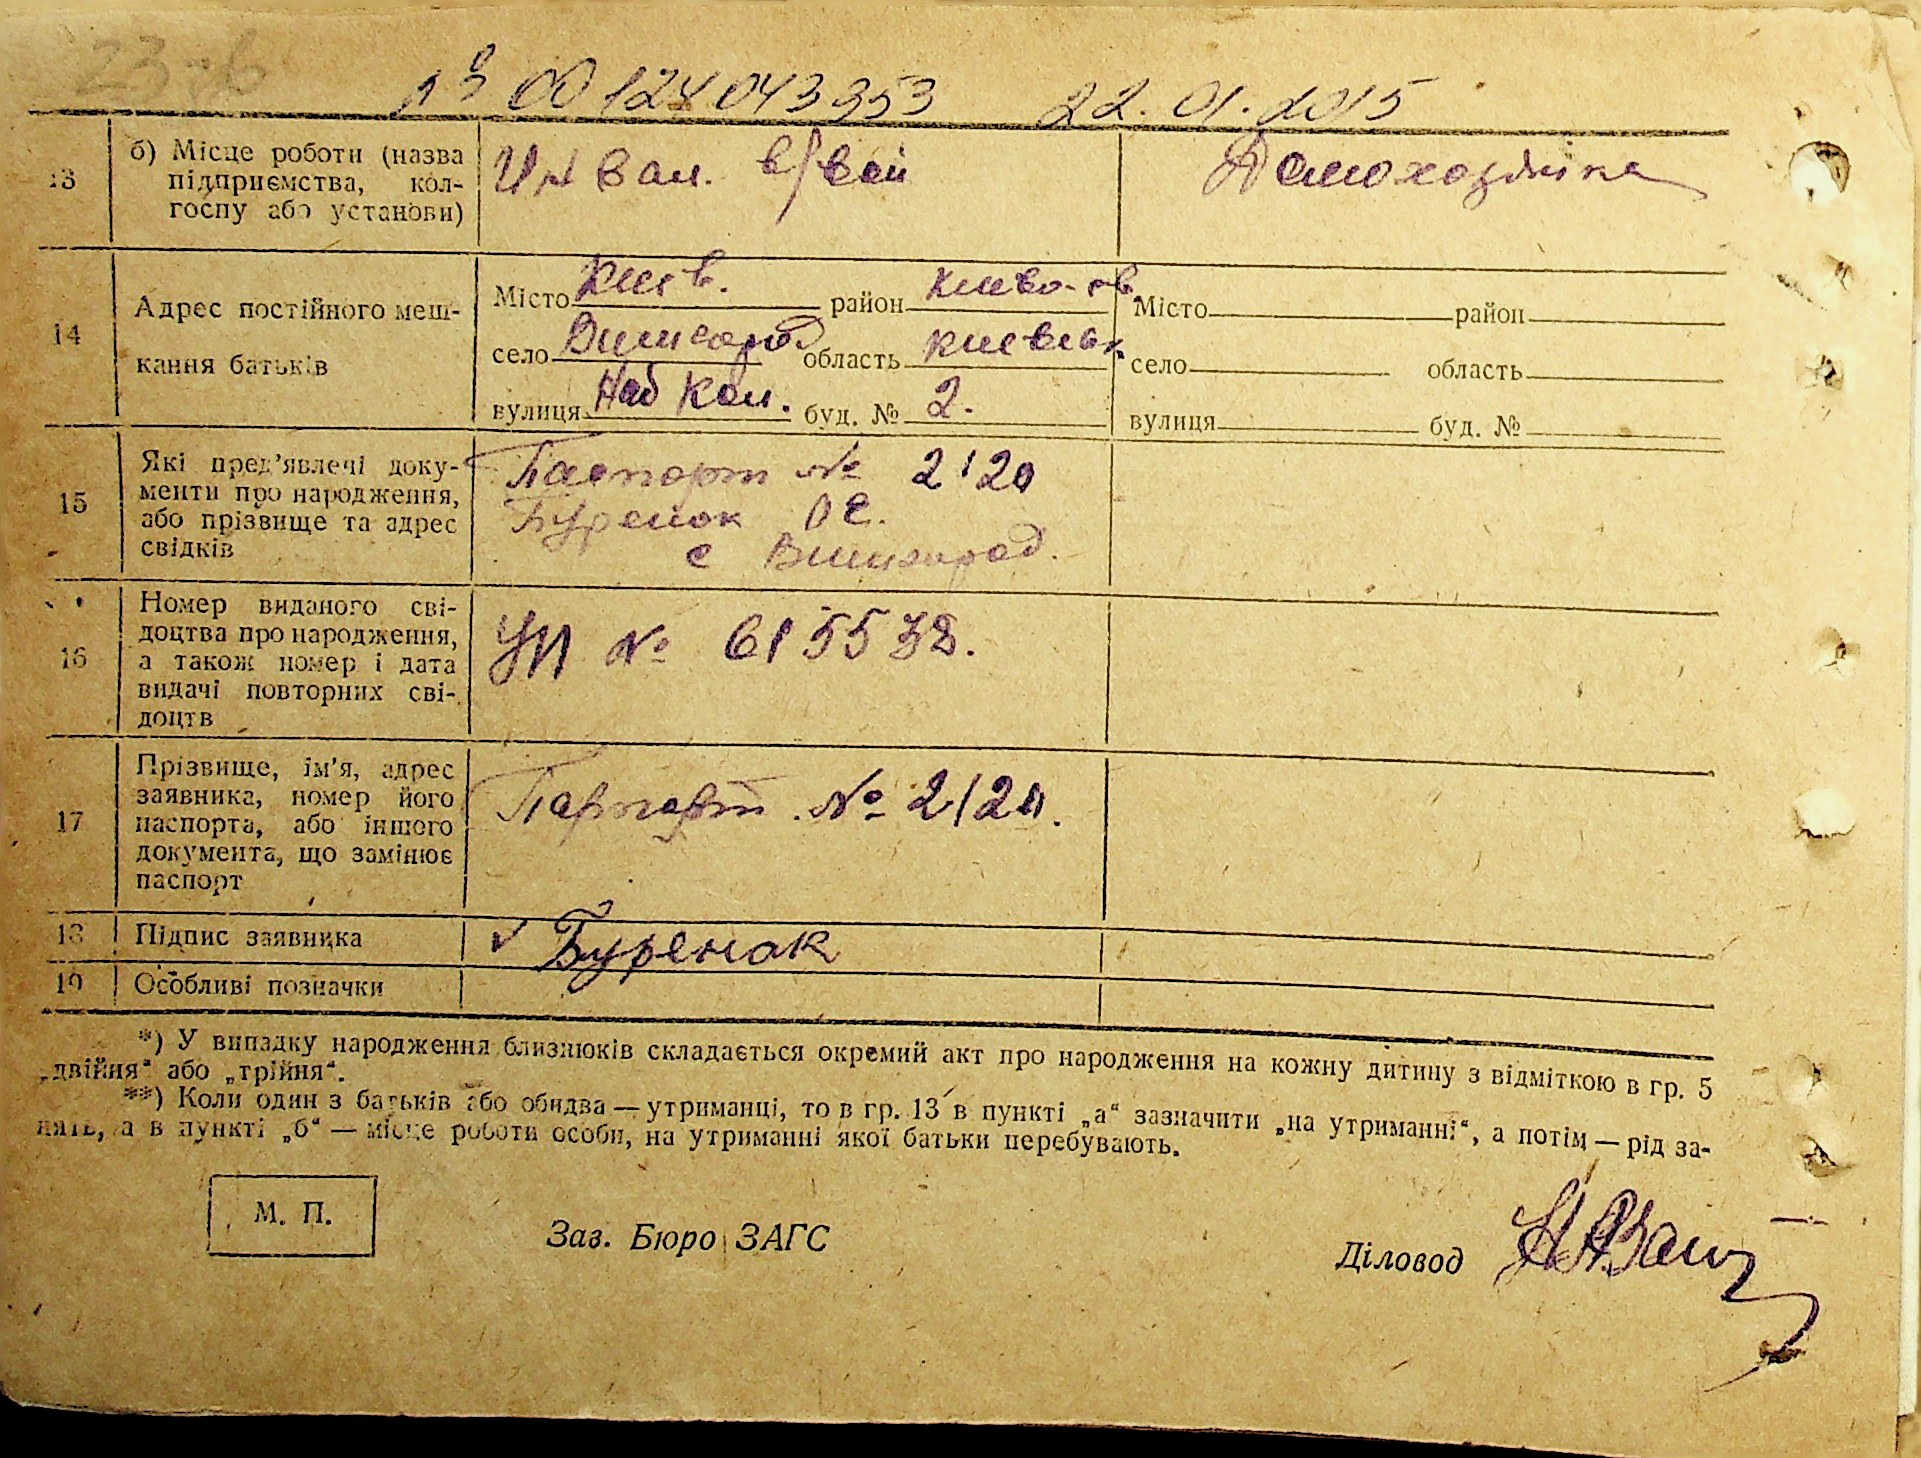 № 00124043353 22.01.2015
13 б) Місце роботи (назва
підприємства, кол-
госпу або установи)
Инвал. в/вой
Домохозяйка
14 Адрес постійного меш-
кання батьків
Місто Киев. район Киево-св
село Вишгород область Киевськ.
вулиця Наб Кол. буд. № 2.
Місто район
село область
вулиця буд. №
15 Які пред'явлені доку-
менти про народження,
або прізвище та адрес
свідків
Паспорт № 2120
Буренок
с Вишгород.
16 Номер виданого сві-
доцтва про народження,
а також номер і дата
видачі повторних сві-
доцтв
УП № 615538.
17 Прізвище, ім'я, адрес
заявника, номер його
паспорта, або іншого
документа, що замінює
паспорт
Паспорт № 2120.
18 Підпис заявника
Буренок
19 Особливі позначки
*) У випадку народження близнюків складається окремий акт про народження на кожну дитину з відміткою в гр. 5
„двійня“ або „трійня“.
**) Коли один з батьків або обидва — утриманці, то в гр. 13 в пункті „а“ зазначити „на утриманні“, а потім — рід за-
нять, а в пункті „б“ — місце роботи особи, на утриманні якої батьки перебувають.
М. П.
Зав. Бюро ЗАГС
Діловод